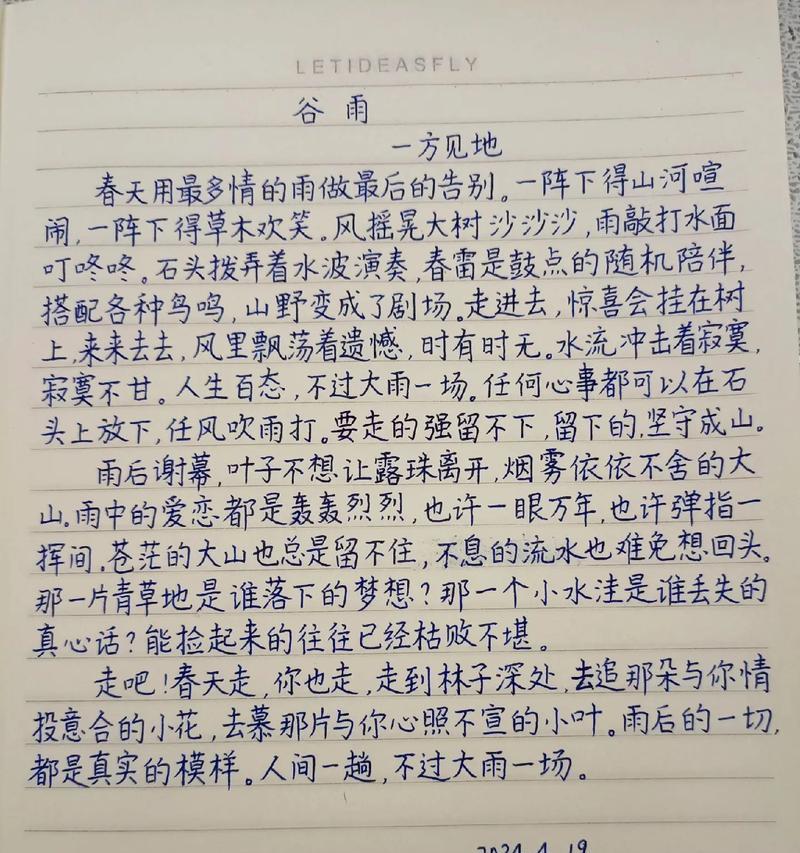 LETIDEASFLY
谷雨
一方见地
春天用最多情的雨做最后的告别。一阵下得山河喧
闹,一阵下得草木欢笑。风摇晃大树沙沙沙,雨敲打水面
叮咚咚。石头拨弄着水波演奏,春雷是鼓点的随机陪伴,
搭配各种鸟鸣,山野变成了剧场。走进去,惊喜会挂在树
上,来来去去,风里飘荡着遗憾,时有时无。水流冲击着寂寞,
寂寞不甘。人生百态,不过大雨一场。任何心事都可以在石
头上放下,任风吹雨打。要走的强留不下,留下的,坚守成山。
雨后谢幕,叶子不想让露珠离开,烟雾依依不舍的大
山。雨中的爱恋都是轰轰烈烈,也许一眼万年,也许弹指一
挥间。苍茫的大山也总是留不住,不息的流水也难免想回头。
那一片青草地是谁落下的梦想?那一个小水洼是谁丢失的
真心话?能捡起来的往往已经枯败不堪。
走吧!春天走,你也走,走到林子深处,去追那朵与你情
投意合的小花,去慕那片与你心照不宣的小叶。雨后的一切,
都是真实的模样。人间一趟,不过大雨一场。